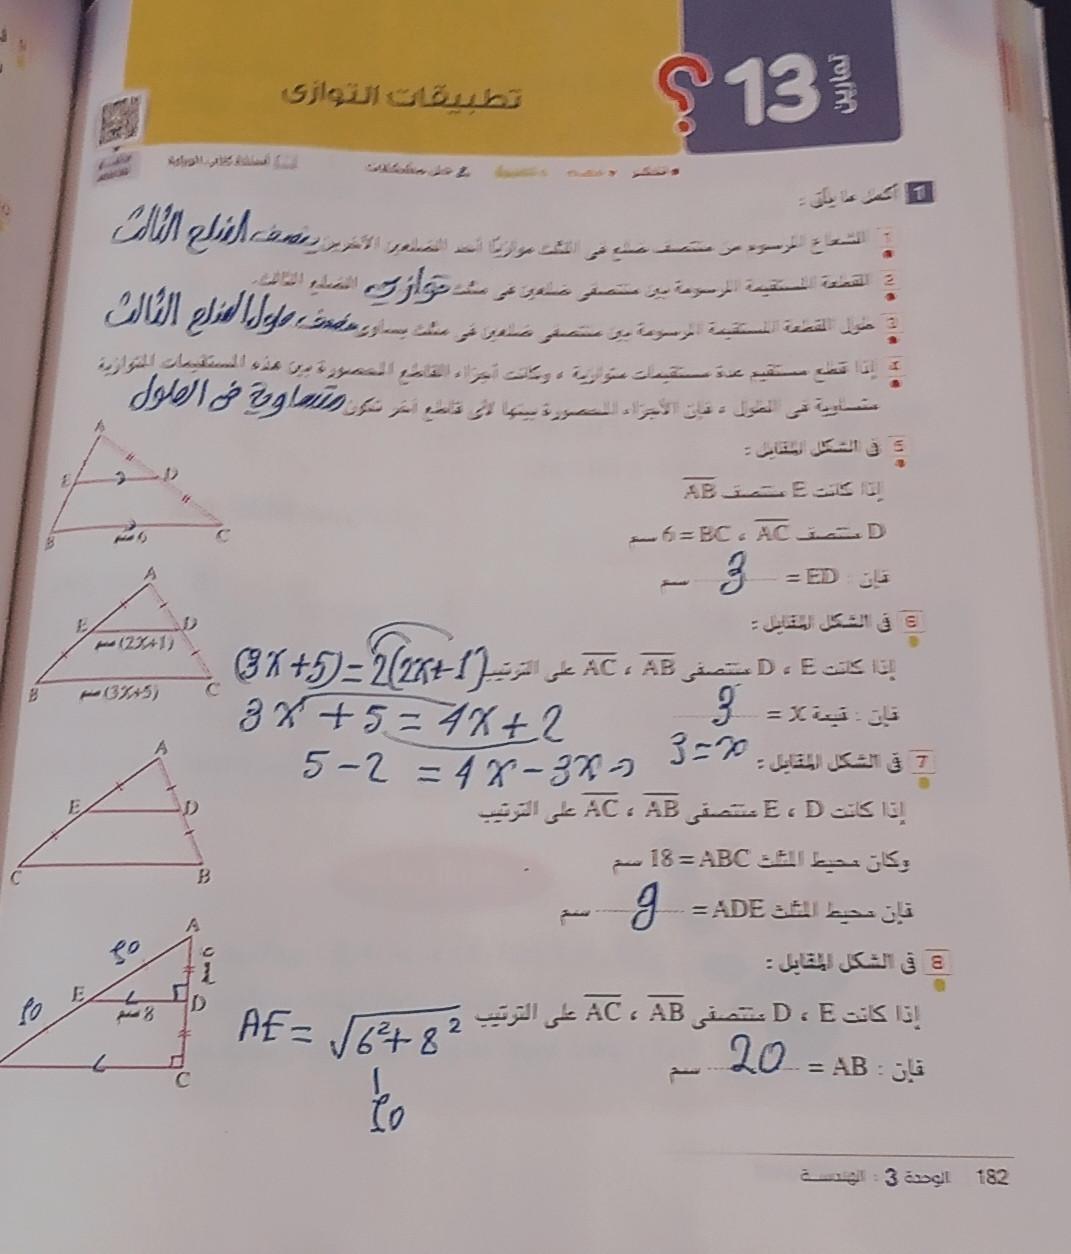 تمارين 13
تطبيقات التوازى
تذكر فهم تطبيق حل مشكلات أسئلة كتاب الوزارة
1 أكمل ما يأتى :
1 الشعاع المرسوم من منتصف ضلع فى المثلث موازيًا أحد الضلعين الآخرين ينصف الضلع الثالث
2 القطعة المستقيمة المرسومة بين منتصفى ضلعين فى مثلث توازى الضلع الثالث.
3 طول القطعة المستقيمة المرسومة بين منتصفى ضلعين فى مثلث يساوى نصف طول الضلع الثالث
4 إذا قطع مستقيم عدة مستقيمات متوازية ، وكانت أجزاء القاطع المحصورة بين هذه المستقيمات المتوازية
متساوية فى الطول ، فإن الأجزاء المحصورة بينها لأى قاطع آخر تكون متساوية فى الطول
5 فى الشكل المقابل :
إذا كانت E منتصف AB
D منتصف AC ، BC = 6 سم
فإن : ED = 3 سم
A
E D
B 6 سم C
6 فى الشكل المقابل :
إذا كانت D ، E منتصفى AB ، AC على الترتيب
(3x+5) = 2(2x+1)
فإن : قيمة x = 3
3x + 5 = 4x + 2
5 - 2 = 4x - 3x ⇒ 3 = x
A
E D
(2x+1) سم
B C
(3x+5) سم
7 فى الشكل المقابل :
إذا كانت E ، D منتصفى AB ، AC على الترتيب
وكان محيط المثلث ABC = 18 سم
فإن محيط المثلث ADE = 9 سم
A
E D
C B
8 فى الشكل المقابل :
إذا كانت D ، E منتصفى AB ، AC على الترتيب
AE = √6²+8²
10
فإن : AB = 20 سم
A
10
6 سم
E D
10
8 سم
C
182 الوحدة 3 : الهندسة